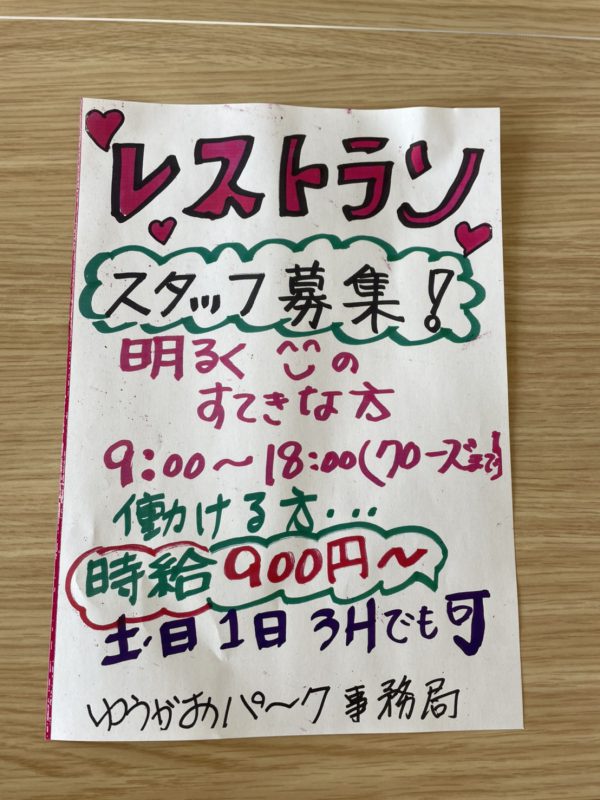 レストラン
スタッフ募集!
明るく ^^の
すてきな方
9:00~18:00(クローズまで)
働ける方・・・
時給 900円~
土・日 1日 3Hでも可
ゆうがおパ~ク 事務局